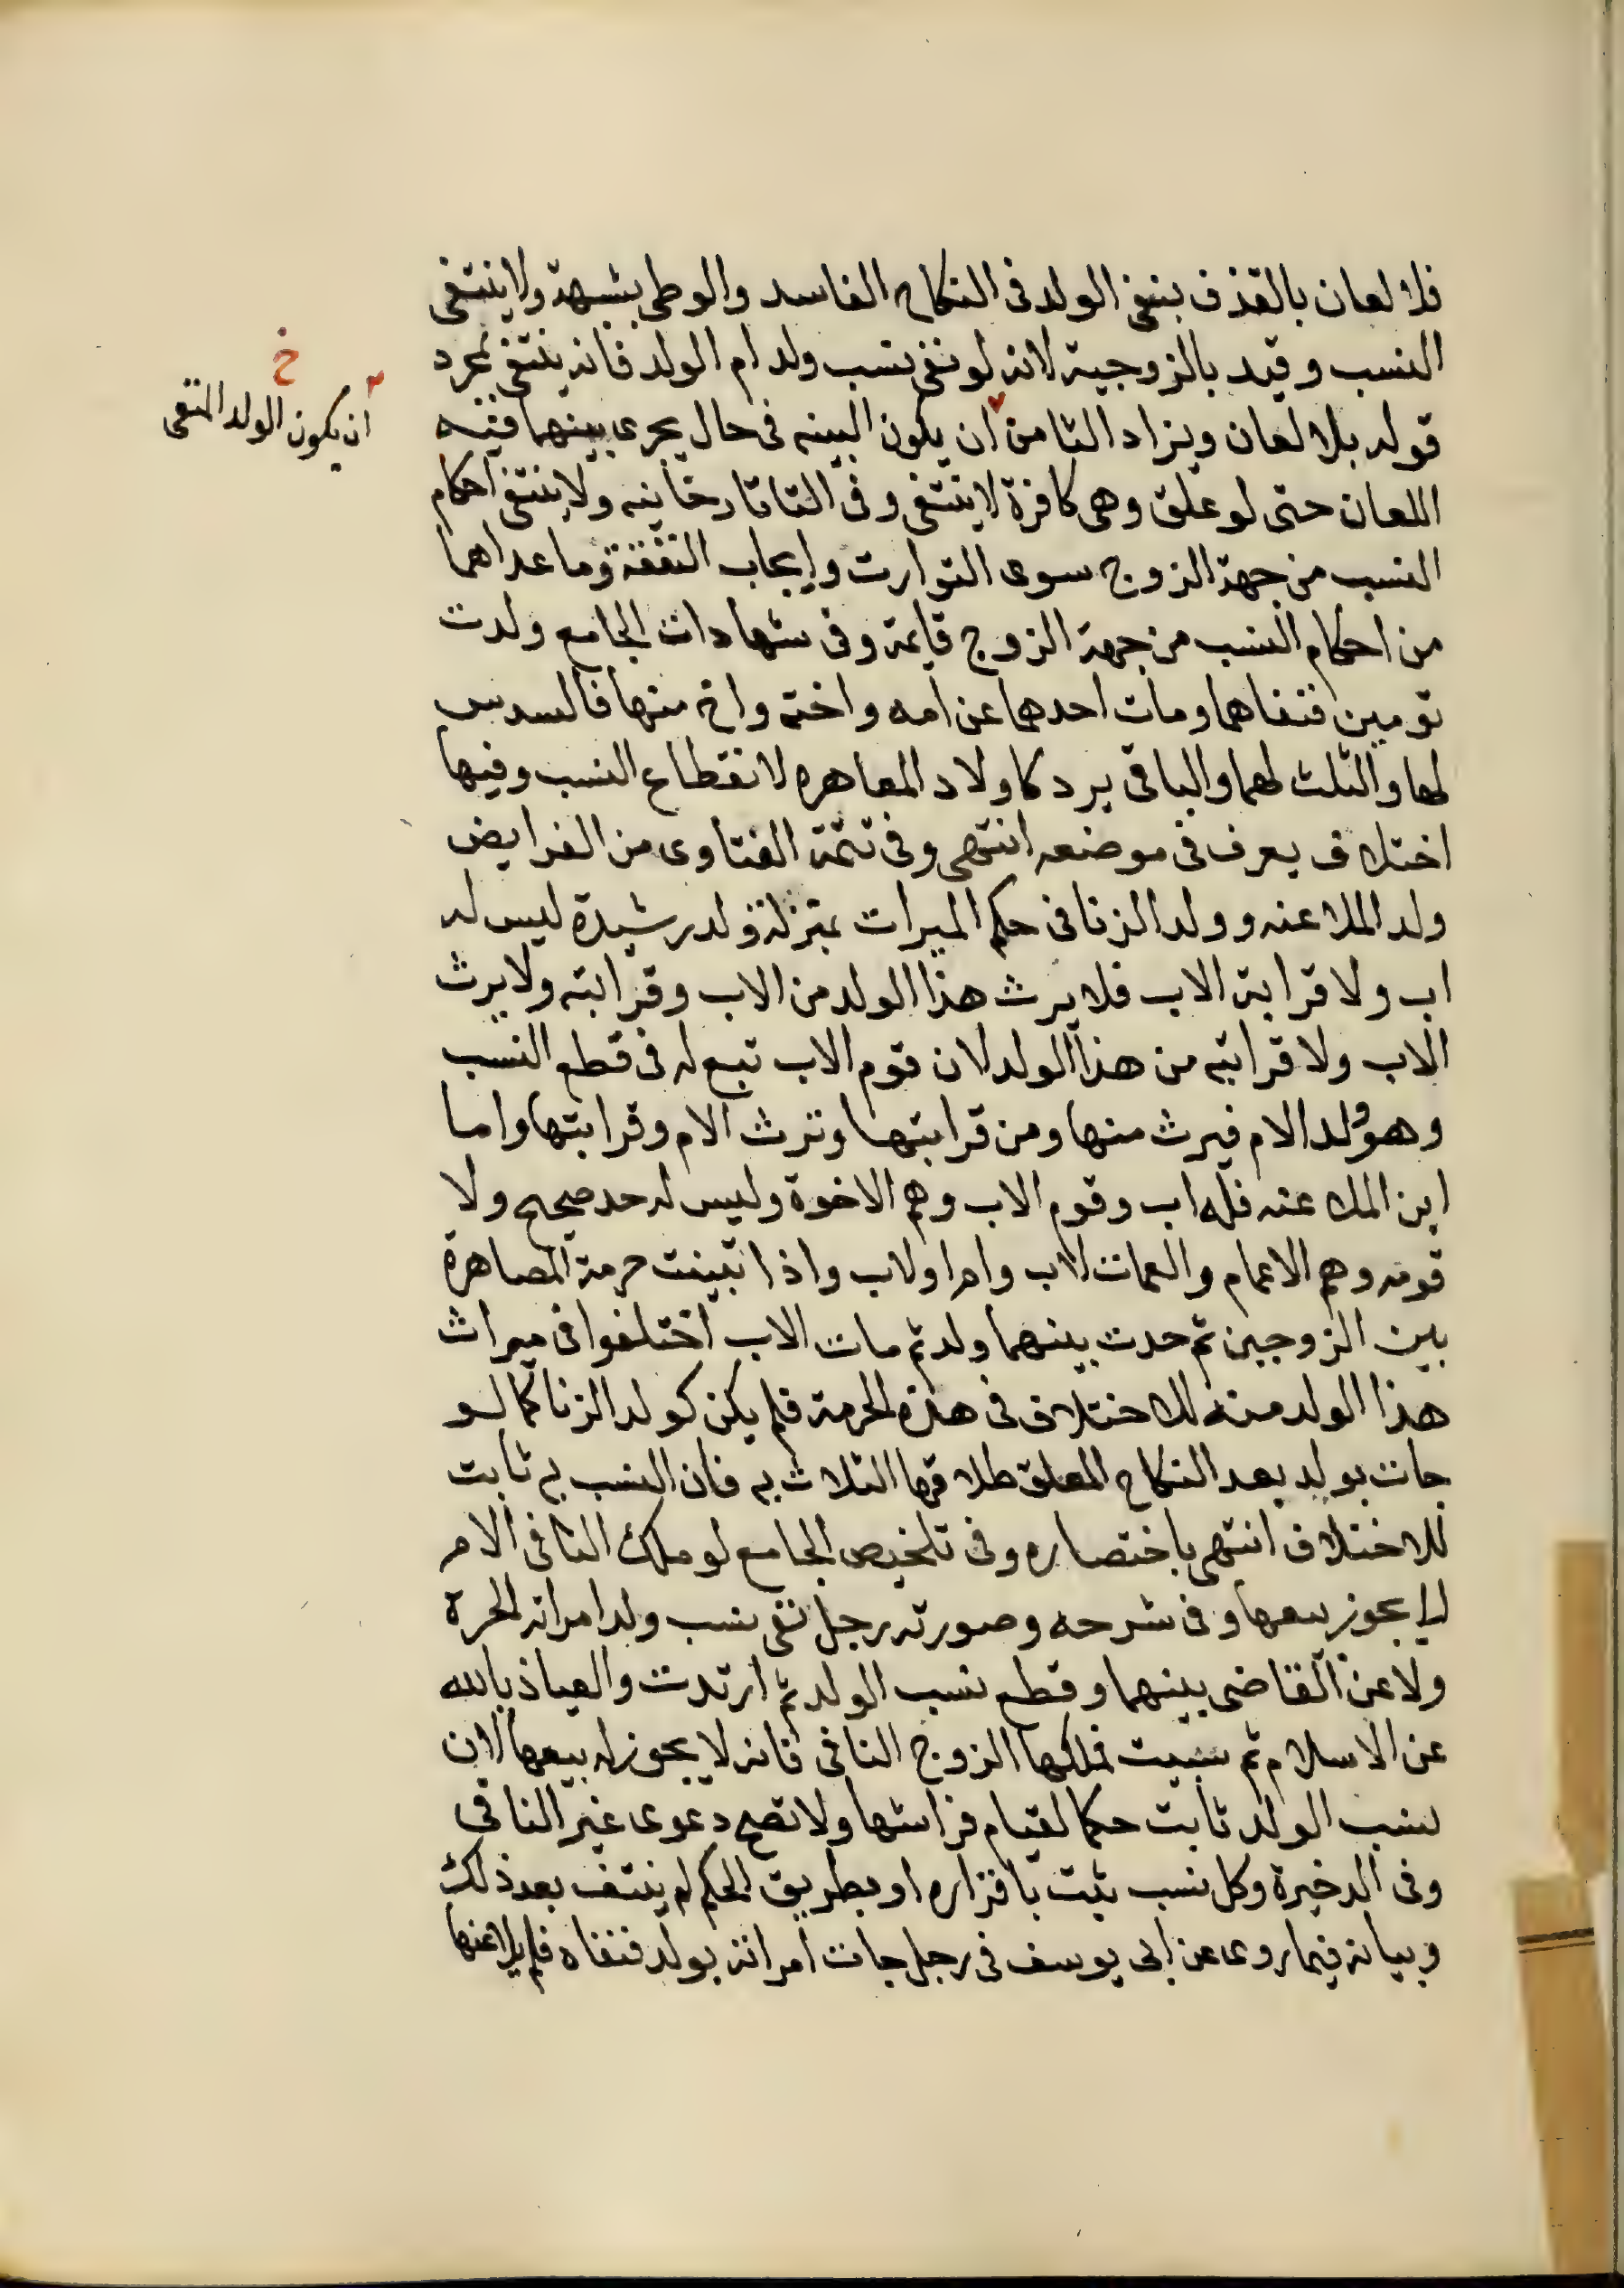 فلا لعان بالقذف بنفى الولد فى النكاح الفاسد والوطى بشبهة ولا ينتفى
النسب وقيد بالزوجية لانه لو نفى نسب ولد ام الولد فانه ينتفى بمجرد
قوله بلا لعان ويزاد الثامن ان يكون البينه فى حال يجرى بينهما فيه
اللعان حتى لو علق وهى كافرة لا ينتفى وفى التاتارخانيه ولا ينتفى احكام
النسب من جهة الزوج سوى التوارث وايجاب النفقة وما عداهما
من احكام النسب من جهة الزوج قايمة وفى شهادات الجامع ولدت
تومين فنفاهما ومات احدهما عن امه واخته واخ منها فالسدس
لها والثلث لهما والباقى يرد كاولاد العاهره لانقطاع النسب وفيها
اختلاف يعرف فى موضعه انتهى وفى تتمة الفتاوى من الفرايض
ولد الملاعنه وولد الزنا فى حكم الميراث بمنزلة ولد رشيدة ليس له
اب ولا قرابة الاب فلا يرث هذا الولد من الاب وقرابته ولا يرث
الاب ولا قرابته من هذا الولد لان قوم الاب تبع له فى قطع النسب
وهو ولد الام فيرث منها ومن قرابتها وترث الام وقرابتها واما
ابن الملاعنه فله اب وقوم الاب وهم الاخوة وليس له جد صحيح ولا
قومه وهم الاعمام والعمات لاب وام اولاب واذا تبينت حرمة المصاهرة
بين الزوجين ثم حدث بينهما ولد ثم مات الاب اختلفوا فى ميراث
هذا الولد منه للاختلاف فى هذه الحرمة فلم يكن كولد الزنا كما لو
جات بولد بعد النكاح المعلق طلاقها الثلاث به فان النسب به ثابت
للاختلاف انتهى باختصاره وفى تلخيص الجامع لو ملك النافى الام
لا يجوز بيعها وفى شرحه وصورته رجل نفى نسب ولد امراته الحرة
ولاعن القاضى بينهما وقطع نسب الولد ثم ارتدت والعياذ بالله
عن الاسلام ثم سبيت فملكها الزوج النافى فانه لا يجوز له بيعها لان
نسب الولد ثابت حكما لقيام فراشها ولا تصح دعوى غير النافى
وفى الدخيرة وكل نسب يثبت باقراره او بطريق الحكم لم ينتف بعد ذلك
وبيانه فيما روى عن ابى يوسف فى رجل جات امراته بولد فنفاه فلم يلاعنها
خ
ان يكون الولد المنفى